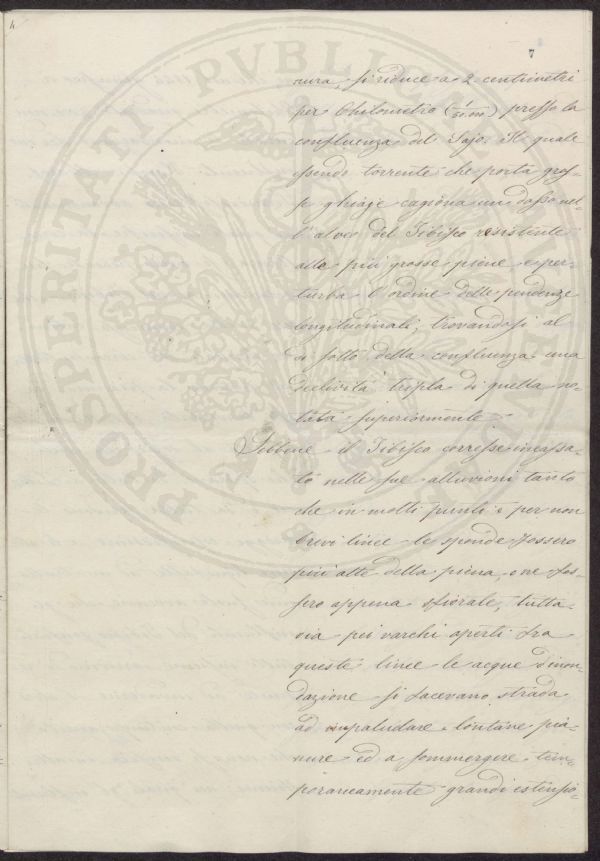 7
nura, si riduce a 2 centimetri
per Chilometro (1/50.000) presso la
confluenza del Sajo. Il quale
essendo torrente che porta gros-
se ghiaje cagiona un dosso nel-
l'alveo del Tibisco resistente
alle più grosse piene e per-
turba l'ordine delle pendenze
longitudinali, trovandosi al
di sotto della confluenza una
declività tripla di quella no-
tata superiormente.
Sebbene il Tibisco corresse incassa-
to nelle sue alluvioni tanto
che in molti punti e per non
brevi linee le sponde fossero
più alte della piena, o ne fos-
sero appena sfiorate, tutta-
via pei varchi aperti fra
queste linee le acque d'inon-
dazione si facevano strada
ad impaludare lontane pia-
nure ed a sommergere tem-
poraneamente grandi estensio-
PROSPERITATI PVBLICAE